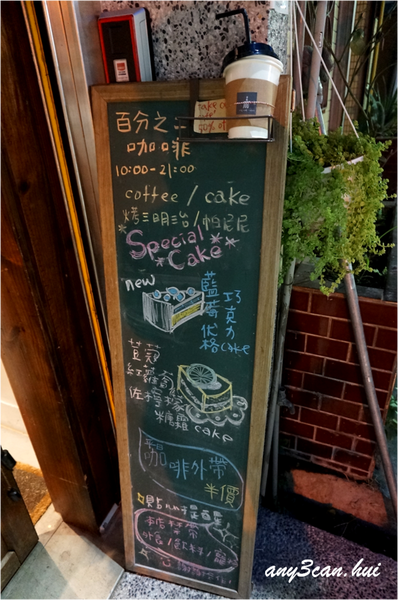 百分之二
咖啡
10:00-21:00
coffee / cake
烤三明治/帕尼尼
Special
Cake
new
藍莓優格
巧克力cake
荳蔻
紅蘿蔔
佐檸檬
糖霜cake
平日
咖啡外帶
半價
貼心提醒
any3can.hui